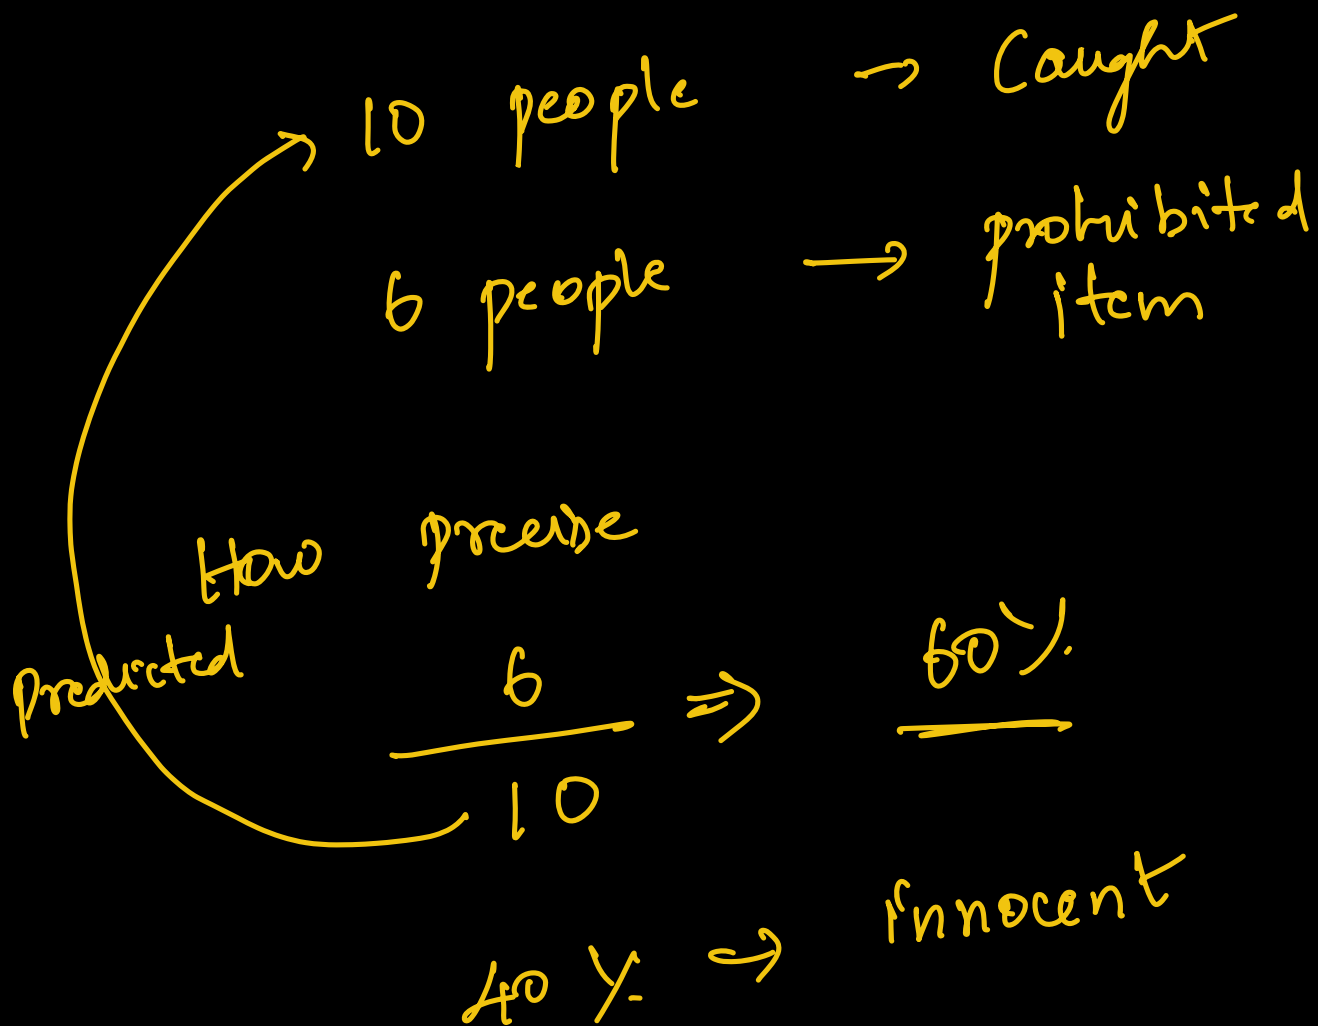 10 people → Caught
6 people → prohibited
item
How precise
Predicted
6
10
⇒ 60%
40% → innocent